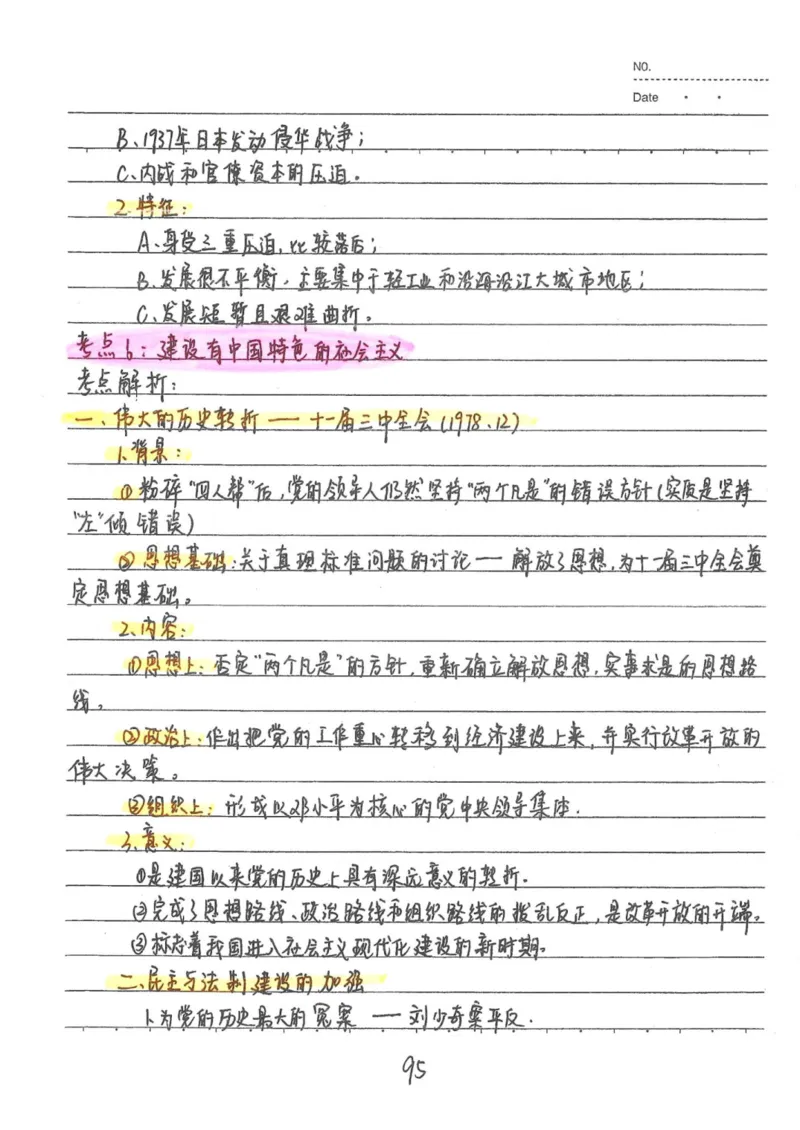 NO.
Date
B、1937年日本发动侵华战争；
C、内战和官僚资本的压迫。
2.特征：
A、身受三重压迫，比较落后；
B、发展很不平衡，主要集中于轻工业和沿海沿江大城市地区；
C、发展短暂且艰难曲折。
考点6：建设有中国特色的社会主义
考点解析：
一、伟大的历史转折——十一届三中全会(1978.12)
1.背景：
①粉碎“四人帮”后，党的领导人仍然坚持“两个凡是”的错误方针(实质是坚持
“左”倾错误)
②思想基础：关于真理标准问题的讨论——解放了思想，为十一届三中全会奠
定思想基础。
2、内容：
①思想上：否定“两个凡是”的方针，重新确立解放思想，实事求是的思想路
线。
②政治上：作出把党的工作重心转移到经济建设上来，并实行改革开放的
伟大决策。
③组织上：形成以邓小平为核心的党中央领导集体.
3、意义：
①是建国以来党的历史上具有深远意义的转折.
②完成了思想路线、政治路线和组织路线的拨乱反正，是改革开放的开端。
③标志着我国进入社会主义现代化建设的新时期。
二、民主与法制建设的加强
1、为党的历史最大的冤案——刘少奇案平反.
95